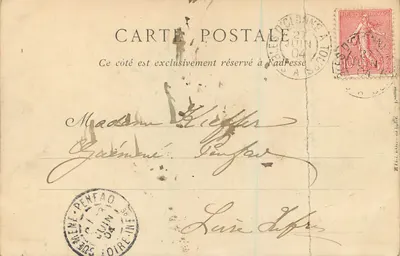 CARTE POSTALE
Ce côté est exclusivement réservé à l'adresse
JUIN
04
Madame Kieffer
Guémené Penfao
Loire Infre
GUÉMENÉ-PENFAO
JUIN
04